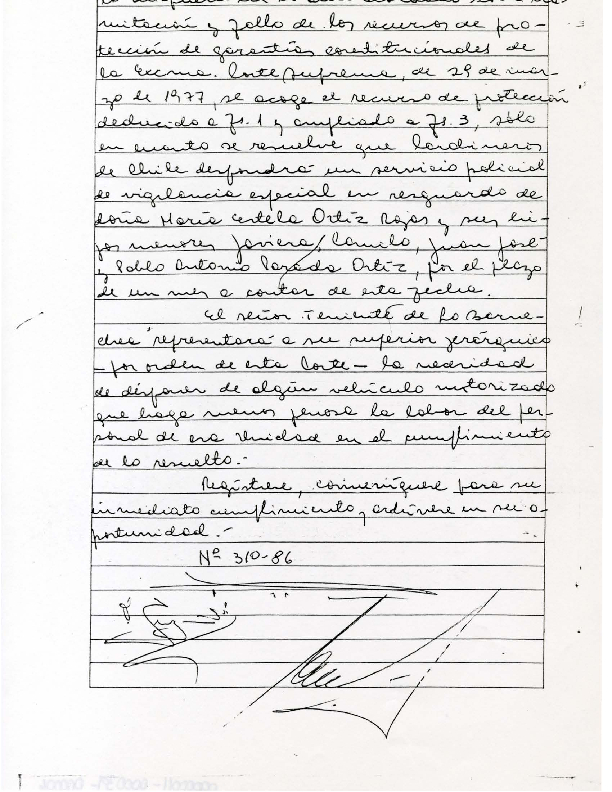 mitación y fallo de los recursos de pro-
tección de garantías constitucionales de
la Excma. Corte Suprema, de 29 de mar-
zo de 1977, se acoge el recurso de protección
deducido a fs. 1 y ampliado a fs. 3, sólo
en cuanto se resuelve que Carabineros
de Chile dispondrá un servicio policial
de vigilancia especial en resguardo de
doña María Estela Ortíz Rojas y sus hi-
jos menores Javiera, Camilo, Juan José
y Pablo Antonio Parada Ortíz, por el plazo
de un mes a contar de esta fecha.
El señor Teniente de Lo Barne-
chea representará a su superior jerárquico
- por orden de esta Corte - la necesidad
de disponer de algún vehículo motorizado
que haga menos penosa la labor del per-
sonal de esa Unidad en el cumplimiento
de lo resuelto.-
Regístrese, comuníquese para su
inmediato cumplimiento y archívese en su o-
portunidad.-
Nº 310-86